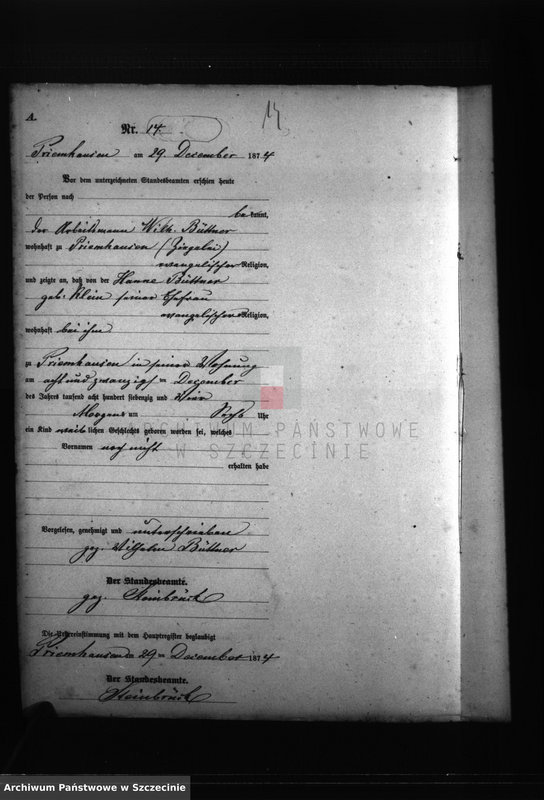 A.
14
Nr. 14.
Priemhausen am 29. December 1874
Vor dem unterzeichneten Standesbeamten erschien heute
der Person nach
bekannt,
der Arbeitsmann Wilh. Büttner
wohnhaft zu Priemhausen (Ziegelei)
evangelischer Religion,
und zeigte an, daß von der Hanne Büttner
geb: Klein seiner Ehefrau
evangelischer Religion,
wohnhaft bei ihm
zu Priemhausen in seiner Wohnung
am acht und zwanzigst en December
des Jahres tausend acht hundert siebenzig und vier
Morgens um Uhr
ein Kind weiblichen Geschlechts geboren worden sei, welches
Vornamen noch nicht
erhalten habe
Vorgelesen, genehmigt und unterschrieben
gez. Wilhelm Büttner
Der Standesbeamte.
gez. Steinbrück
Die Uebereinstimmung mit dem Hauptregister beglaubigt
Priemhausen 29 December 1874
Der Standesbeamte.
Steinbrück
ARCHIWUM PAŃSTWOWE
W SZCZECINIE
Archiwum Państwowe w Szczecinie